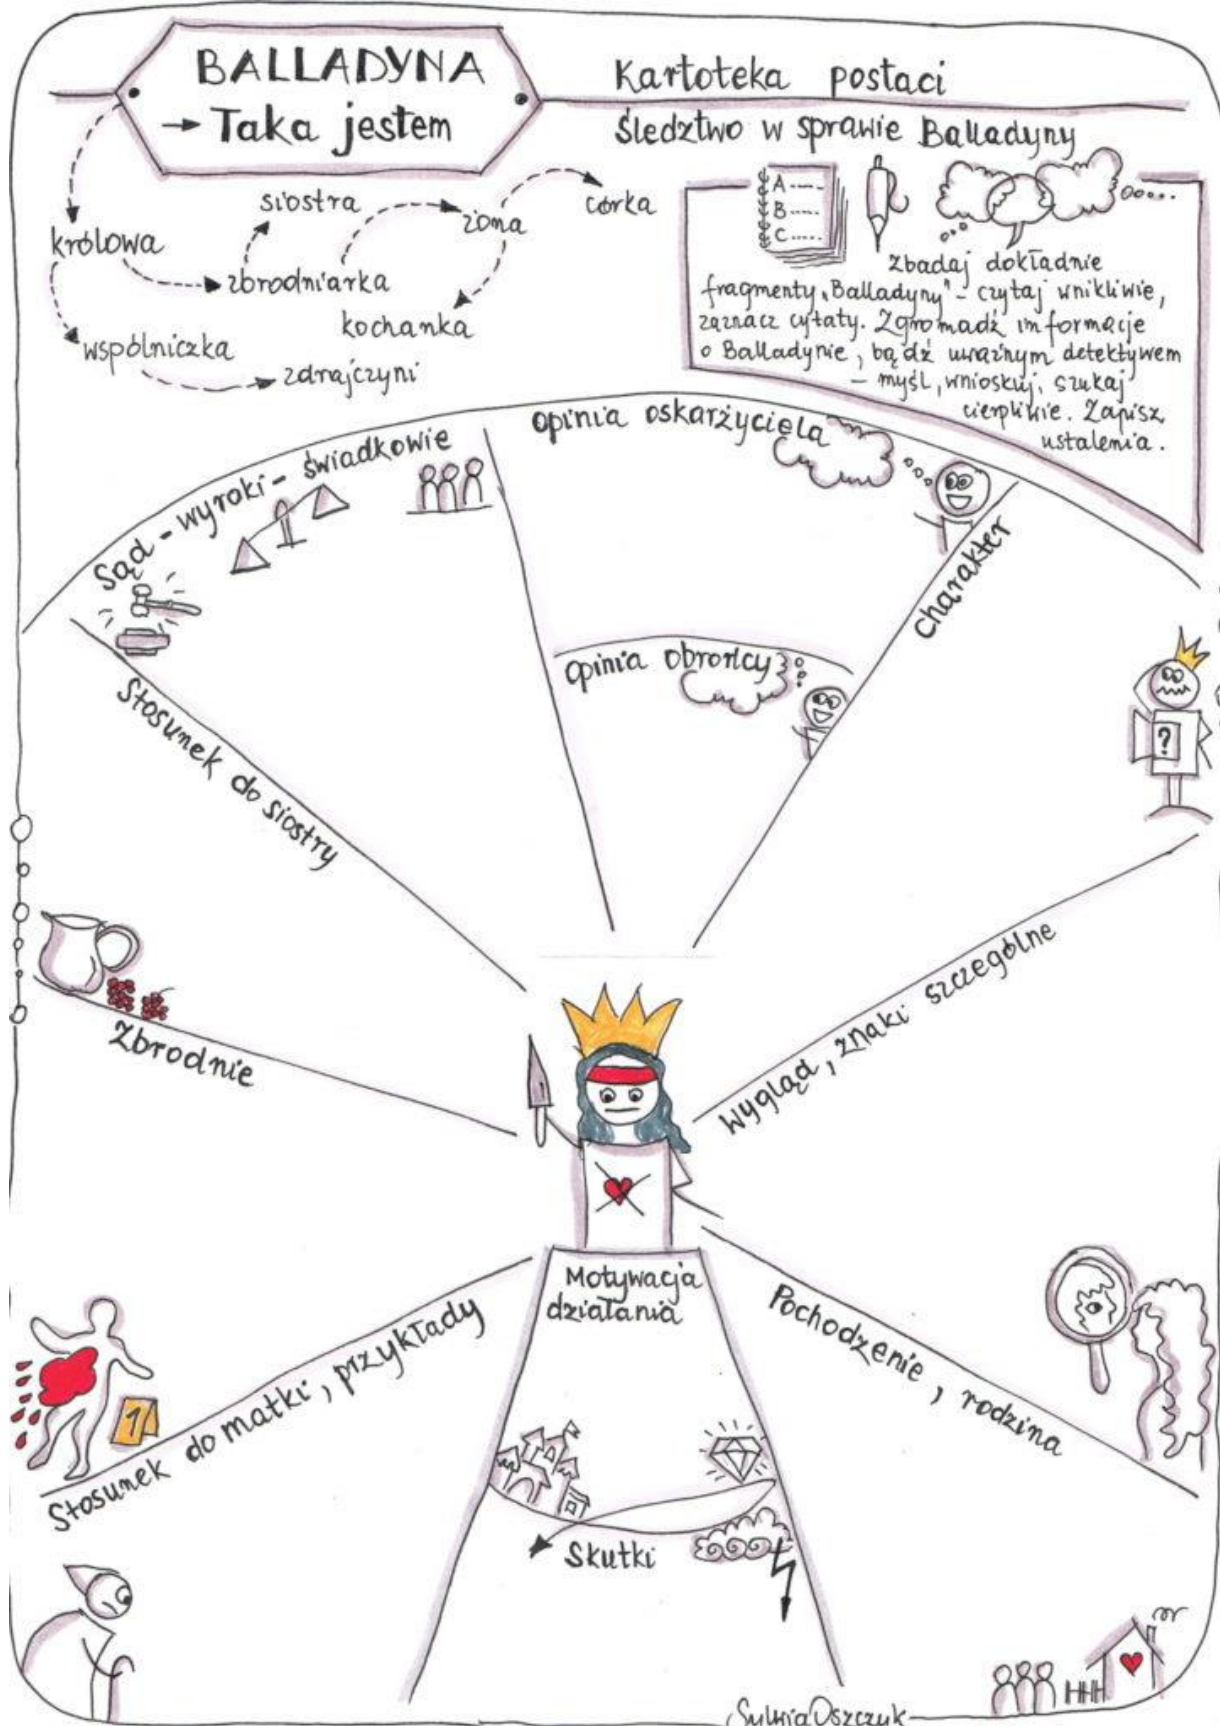 BALLADYNA
→ Taka jestem
Kartoteka postaci
Śledztwo w sprawie Balladyny
królowa
siostra
żona
córka
zbrodniarka
kochanka
wspólniczka
zdrajczyni
A
B
C
Zbadaj dokładnie
fragmenty „Balladyny" - czytaj wnikliwie,
zaznacz cytaty. Zgromadź informacje
o Balladynie, bądź uważnym detektywem
- myśl, wnioskuj, szukaj
cierpliwie. Zapisz
ustalenia.
Sąd - wyroki - świadkowie
opinia oskarżyciela
opinia obrońcy
charakter
?
Stosunek do siostry
Zbrodnie
Wygląd, znaki szczególne
Motywacja
działania
Pochodzenie, rodzina
1
Stosunek do matki, przykłady
Skutki
Sylwia Oszczyk